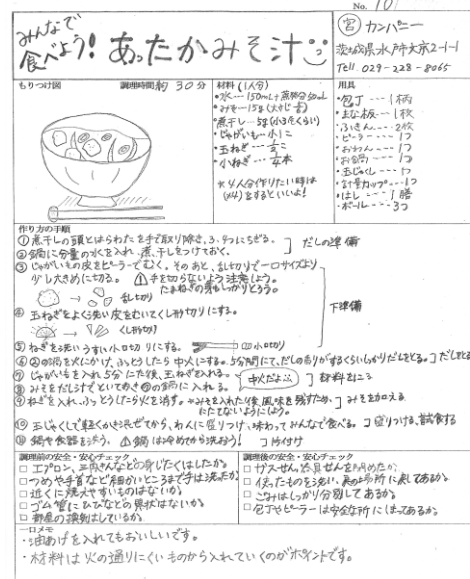 No. 10
みんなで
食べよう!
あったかみそ汁
宮 カンパニー
茨城県水戸市大京2-1-1
Tell 029-228-8065
もりつけ図
調理時間 約30分
材料(1人分)
・水…150ml+蒸発分50ml
・みそ…15g(大さじ
煮干し…5g(小3匹くらい)
・じゃがいも…小1こ
・玉ねぎ…
・小ねぎ…
※4人分作りたい時は
(×4)をするといいよ!
用具
・包丁---1柄
・まな板---1枚
・ふきん---2枚
・ピーラー---1つ
・おわん---1つ
・お鍋---1つ
・玉じゃくし---1つ
・計量カップ---1つ
・はし---1膳
・ボール---3つ
作り方の手順
①煮干しの頭とはらわたを手で取り除き、3、4つにちぎる。
②鍋に分量の水を入れ、煮干しをつけておく。
だしの準備
③じゃがいもの皮をピーラーでむく。そのあと、乱切りで一口サイズより
少し大きめに切る。 手を切らないよう注意しよう。
乱切り
④玉ねぎをよく洗い皮をむいてくし形切りにする。
くし形切り
下準備
⑤ねぎを洗いうすい小口切りにする。
小口切り
⑥②の鍋を火にかけ、ふっとうしたら中火にする。5分間にて、だしの香りがするくらいしっかりだしをとる。
だしをとる
⑦じゃがいもを入れ5分たで後、玉ねぎを入れる。
中火だよ
材料をにる
⑧みそをだしでといておき の鍋に入れる。
⑨ねぎを入れ、ふっとうしたら火を消す。※みそを入れた後、風味を残すため、
にたてないようにしよう。
みそを加える
⑩玉じゃくしで軽くかき混ぜてから、わんに盛りつけ、味わってみんなで食べる。
盛りつける、試食する
⑪鍋や食器を洗う。 鍋は冷めてから洗おう!
片付け
調理前の安全・安心チェック
□エプロン、三角きんなどの身じたくはしたか。
□つめや手首など細かいところまで手は洗ったか。
□近くに燃えやすいものはないか。
□ゴム管にひびなどの異状はないか。
□部屋の換気はしているか。
調理後の安全・安心チェック
□ガスせん、器具せんを閉めたか。
□使ったものを洗い、元の場所に戻してあるか。
□ごみはしっかり分別してあるか。
□包丁やピーラーは安全な所にしまってあるか。
一口メモ
・油あげを入れてもおいしいです。
・材料は火の通りにくいものから入れていくのがポイントです。